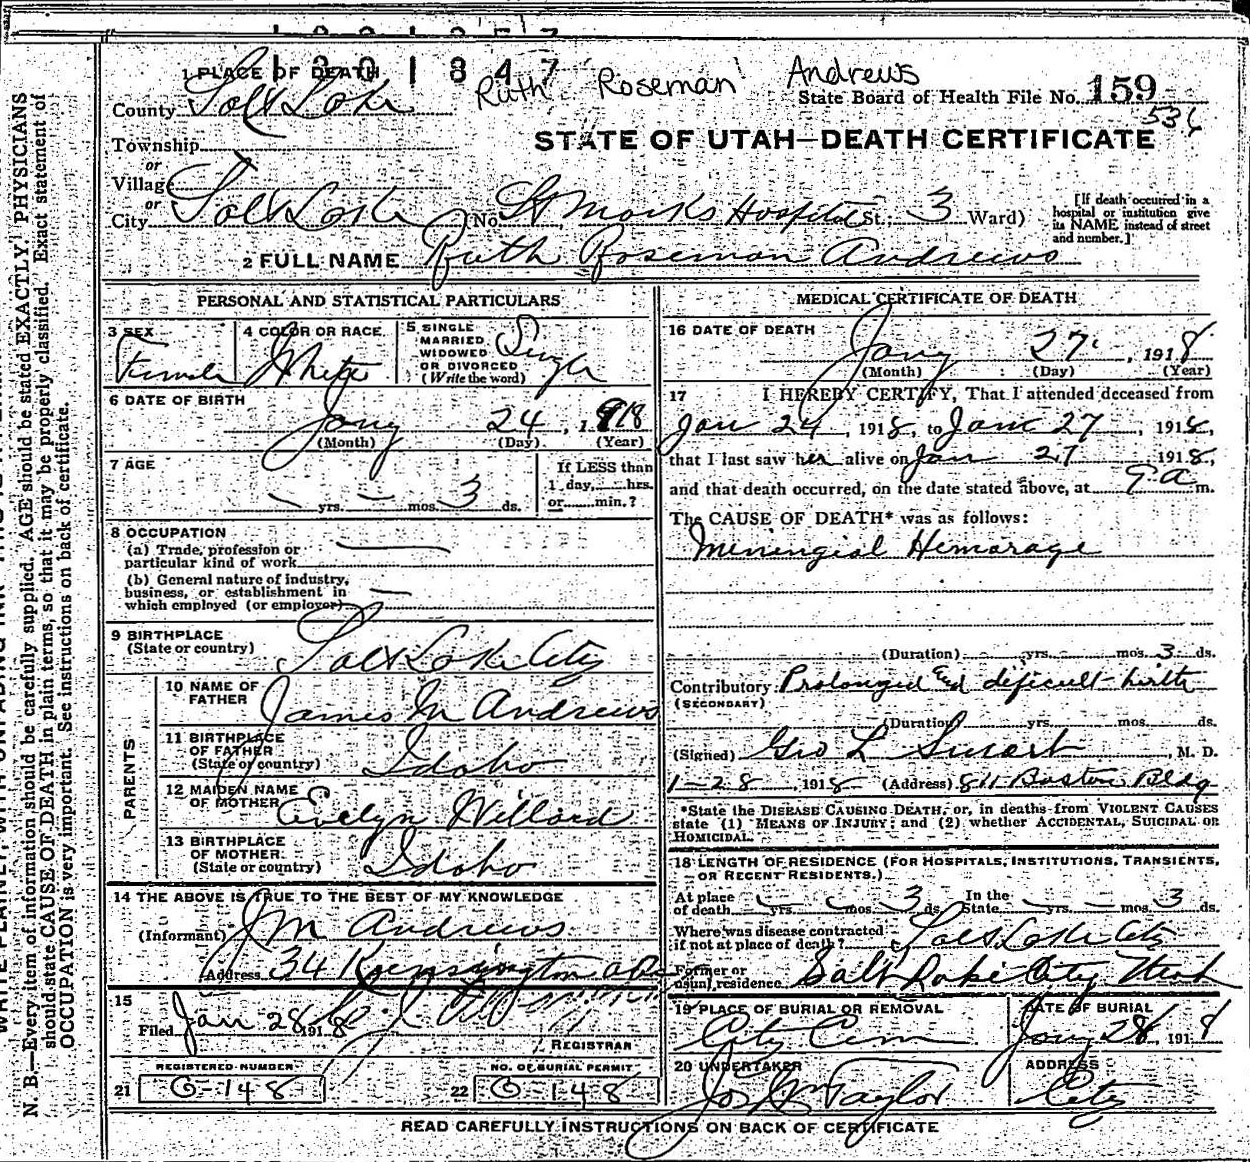 1201847
1 PLACE OF DEATH
Ruth Roseman Andrews
County Salt Lake
State Board of Health File No. 159
536
Township
STATE OF UTAH—DEATH CERTIFICATE
or
Village
or
City Salt Lake No. St Marks Hospital St.; 3 Ward)
[If death occurred in a hospital or institution give its NAME instead of street and number.]
2 FULL NAME Ruth Roseman Andrews
PERSONAL AND STATISTICAL PARTICULARS
3 SEX Female
4 COLOR OR RACE White
5 SINGLE
MARRIED
WIDOWED
OR DIVORCED
(Write the word) Single
6 DATE OF BIRTH
Jany 24, 1918
(Month) (Day) (Year)
7 AGE
— yrs. — mos. 3 ds.
If LESS than
1 day,......hrs.
or......min.?
8 OCCUPATION
(a) Trade, profession or
particular kind of work —
(b) General nature of industry,
business, or establishment in
which employed (or employer) —
9 BIRTHPLACE
(State or country) Salt Lake City
PARENTS
10 NAME OF
FATHER James M Andrews
11 BIRTHPLACE
OF FATHER
(State or country) Idaho
12 MAIDEN NAME
OF MOTHER Evelyn Willard
13 BIRTHPLACE
OF MOTHER
(State or country) Idaho
14 THE ABOVE IS TRUE TO THE BEST OF MY KNOWLEDGE
(Informant) J M Andrews
Address 34 Kensington ave
15
Filed Jan 28 1918
REGISTRAR
REGISTERED NUMBER
21 O-148
NO. OF BURIAL PERMIT
22 O-148
MEDICAL CERTIFICATE OF DEATH
16 DATE OF DEATH
Jany 27, 1918
(Month) (Day) (Year)
17 I HEREBY CERTIFY, That I attended deceased from
Jan 24, 1918, to Jan 27, 1918,
that I last saw her alive on Jan 27 1918,
and that death occurred, on the date stated above, at 9 a m.
The CAUSE OF DEATH* was as follows:
Meningial Hemorage
(Duration) — yrs. — mos. 3 ds.
Contributory Prolonged and dificult birth
(SECONDARY)
(Duration) yrs. mos. ds.
(Signed) Geo L Smart, M. D.
1-28, 1918 (Address) 811 Boston Bldg
*State the DISEASE CAUSING DEATH, or, in deaths from VIOLENT CAUSES
state (1) MEANS OF INJURY; and (2) whether ACCIDENTAL, SUICIDAL OR
HOMICIDAL.
18 LENGTH OF RESIDENCE (FOR HOSPITALS, INSTITUTIONS, TRANSIENTS,
OR RECENT RESIDENTS.)
At place
of death — yrs. — mos. 3 ds. In the
State — yrs. — mos. 3 ds.
Where was disease contracted
if not at place of death? Salt Lake City
Former or
usual residence Salt Lake City Utah
19 PLACE OF BURIAL OR REMOVAL
City Cem
DATE OF BURIAL
Jany 28, 1918
20 UNDERTAKER
Jos Wm Taylor
ADDRESS
City
READ CAREFULLY INSTRUCTIONS ON BACK OF CERTIFICATE
N. B.—Every item of information should be carefully supplied. AGE should be stated EXACTLY. PHYSICIANS
should state CAUSE OF DEATH in plain terms, so that it may be properly classified. Exact statement of
OCCUPATION is very important. See instructions on back of certificate.